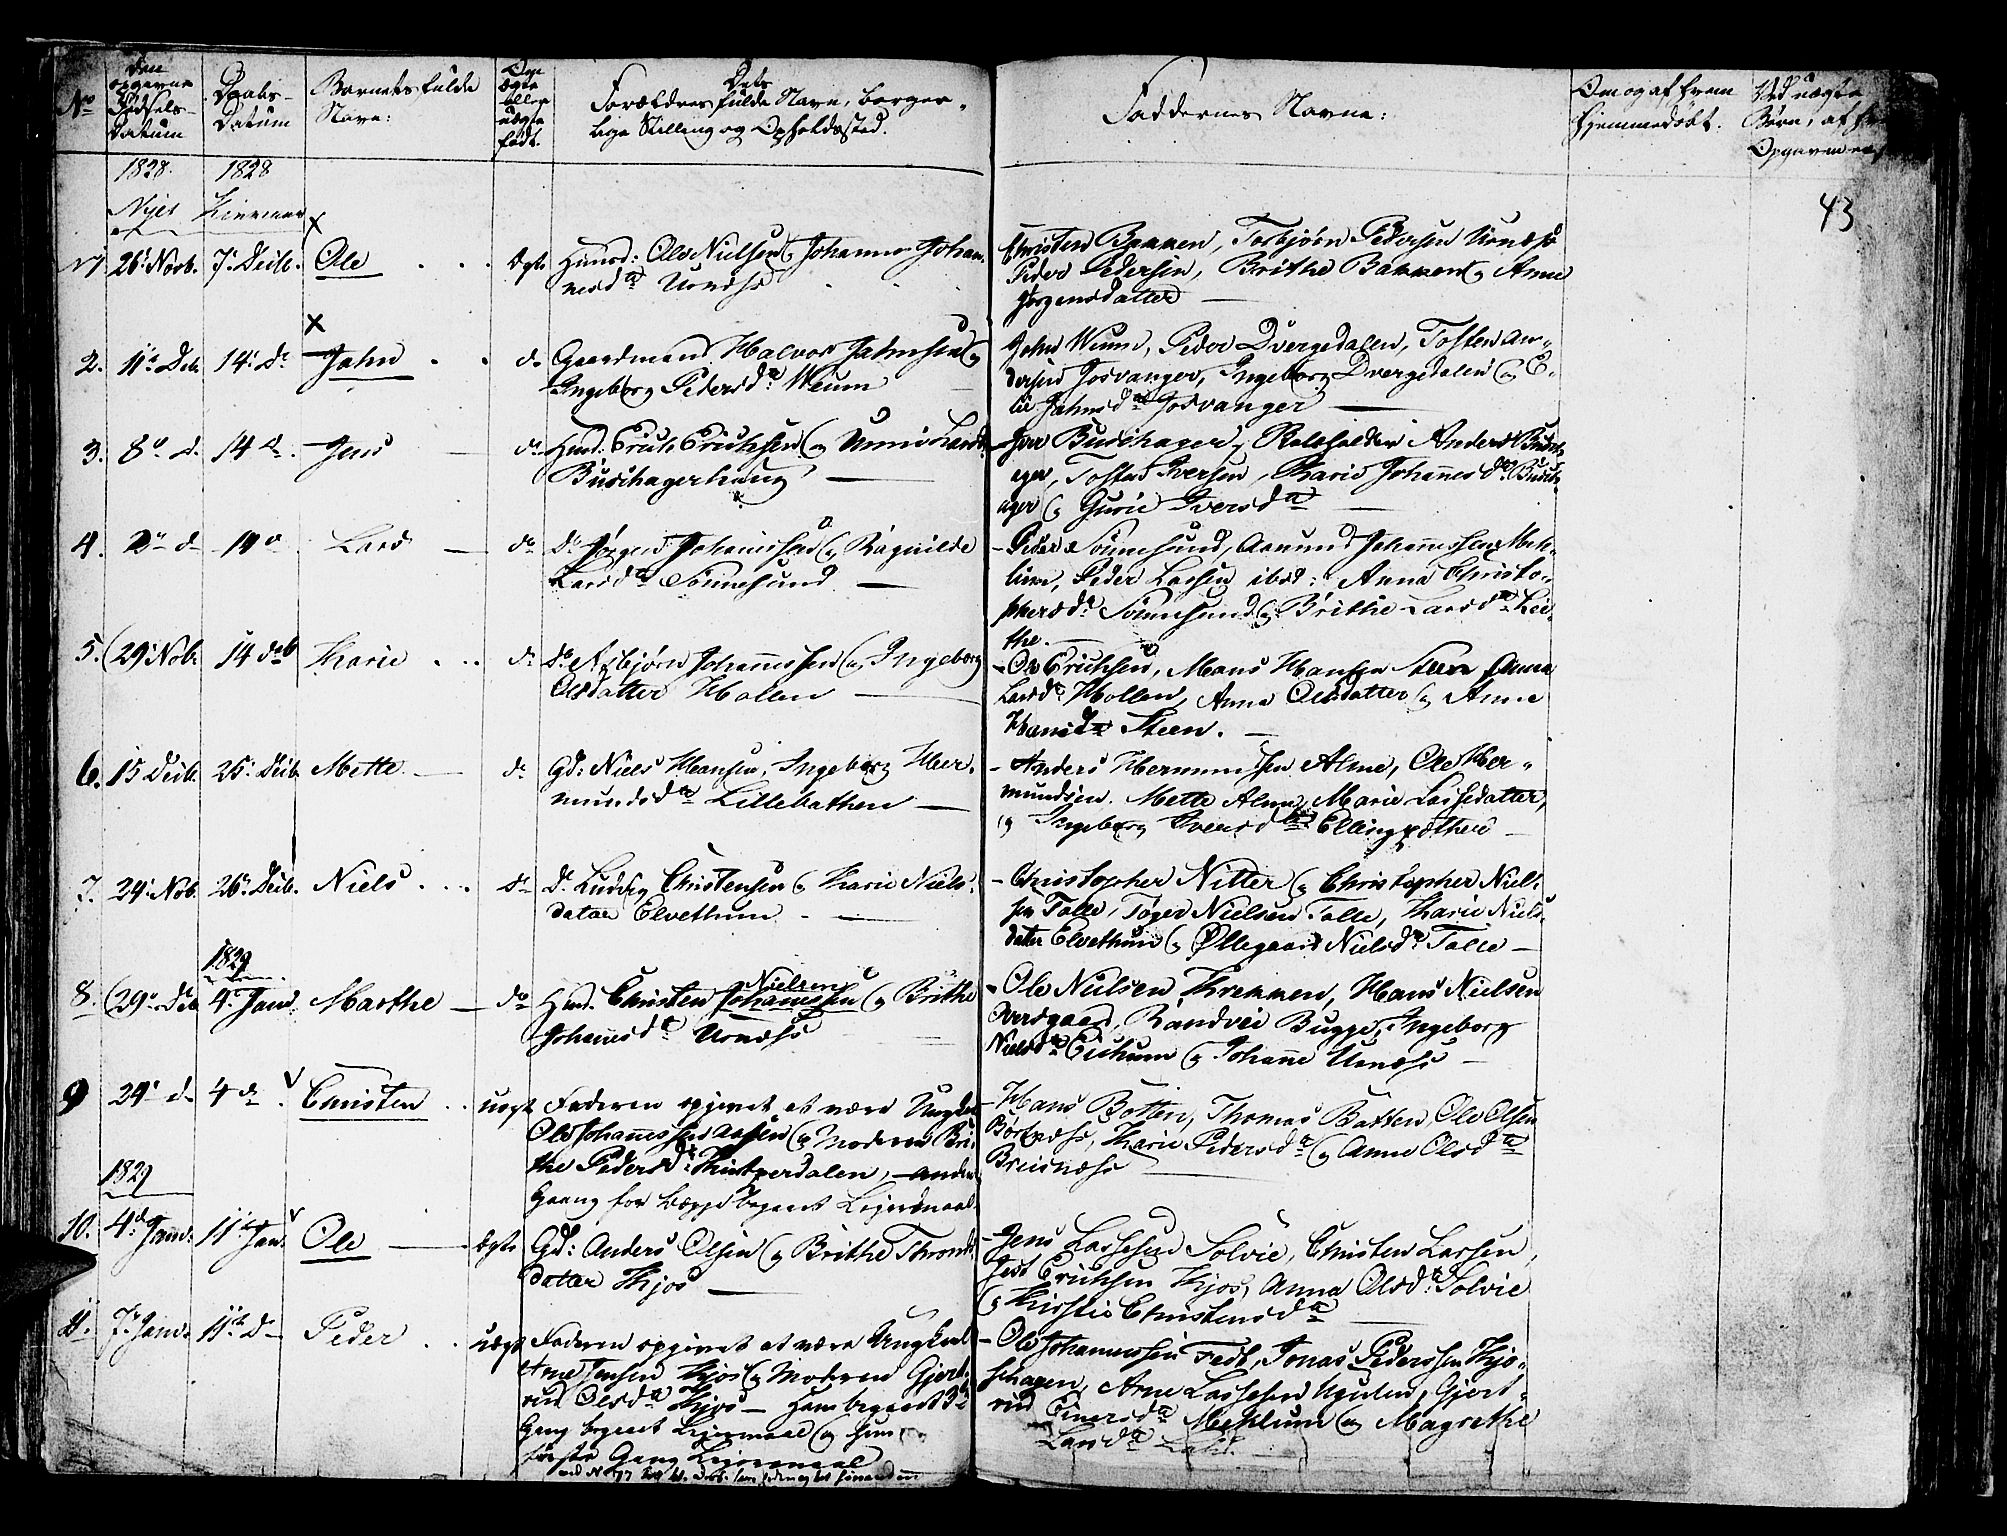 No
den opgivne Fødsels-Datum
Daabs-Datum
Barnets fulde Navn:
Om ægte eller uægte født.
Dets Forældres fulde Navn, borger-
lige Stilling og Opholdssted.
Faddernes Navne:
Om og af hvem
hjemmedøbt.
Ved uægte
Børn, af hv
Opgaven er
43
1828. 1828
Nyet Kirkeaar
26. Novb. 7. Decbr. Ole ægte Huusd: Ole Nielsen & Johanne Johan-
nesdr. Urnæss
Christen Bakken, Torbjørn Pedersen Urnæss
Peder Pedersen, Brithe Bakken & Anne
Jørgensdatter
2. 11te Decbr. 14. Do Jahn do Gaardmand Halvor Jahnsen &
Ingeborg Pedersdr. Weum
John Weum, Peder Dvergedalen, Tosten An-
dersen Josvanger, Ingeborg Dvergedalen & E-
lie Jahnsdr. Josvanger
3. 8de d. 14 d. Jens do Huusd. Erich Erichsen & Unni Larsdr.
Budshagerhaug
Iver Budshager, Anders Buds-
ager, Tosten Iversen, Karie Johannesdr. Buds-
ager & Gurie Iversdr.
4. do 14 d Lars do Do Jørgen Johannessen & Ragnilde
Larsdr. Sønnesund
Peder Sønnesund, Aamund Johannessen Meh-
lum, Peder Larsen ibid: Anna Christo-
phersdr. Sønnesund & Brithe Larsdr. Lei-
the.
5. (29. Nob. 14 deb Karie do Do Asbjørn Johannessen & Ingeborg
Olsdatter Hollen
Ole Erichsen, Mons Hansen Steen Anna
Larsdr. Hollen, Anna Olsdatter & Anne
Hansdr. Steen.
6. 15 Decbr. 25. Decbr. Mette do Gd: Niels Hansen, Ingeborg Her-
mundsdr. Lillebakken
Anders Hermundsen Alme, Ole Her-
mundsen. Mette Alme, Marie Lassedatter,
& Ingeborg Iversdr.
7. 24. Nob. 26. Decb. Niels do Do Ludvig Christensen & Karie Niels-
datter Elvethun
Christopher Nitter & Christopher Niel-
sen Talle, Tøger Nielsen Talle, Karie Niels-
datter Elvethun & Øllegaard Nielsdr. Talle
1829
8. (29. Decb 4de Janr. Marthe do Huusd. Christen Johannessen Nielsen & Brithe
Johannesdr. Urnæss
Ole Nielsen Krekken, Hans Nielsen
Ovregaard, Randvei Bugge, Ingeborg
Nielsdr. Eikum & Johanne Urnæss
9 24. d. 4 do Christen uægt Faderen opgivet at være Ungkarl
Ole Johannessen Aasen & Moderen Bri-
the Pedersdr. anden
Gang for begge begaaet Leiermaal
Hans Botten, Thomas Botten, Ole Olsen
Bortnæss, Karie Pedersdr. & Anne Olsdr.
Kroknæss
1829
10. 4de Janr. 11te Jan. Ole ægte Gd: Anders Olsen & Brithe Thrond-
datter Kjos
Jens Lassesen Solvie, Christen Larsen,
Jest Erichsen Kjos, Anna Olsdr. Solvie
& Kirstie Christensdr.
11. 7de Janr. 11te Do Peder uægt Faderen opgivet at være Ungkarl
Arne Jensen Kjos & Moderen Gjert-
rud Olsdr. Kjos - Ham begaaet 3die
Gang begaaet Leiermaal & hun
første Gang Leiermaal
Ole Johannessen Fedt, Jonas Pedersen Kjo-
sehagen, Arne Lassesen Ugulen, Gjert-
rud Einersdr. Mehlum & Magrethe
Larsdr.